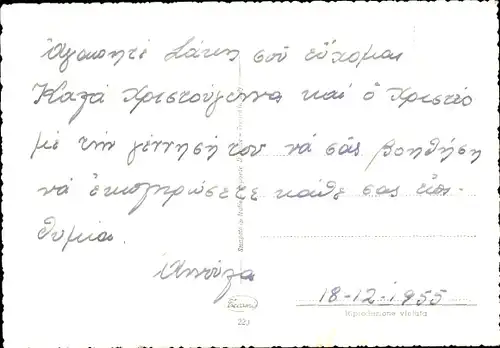 Ἀγαπητέ Σάκη σοῦ εὔχομαι
Καλά Χριστούγεννα καί ὁ Χριστός
μέ τήν γέννησή του νά σᾶς βοηθήση
νά ἐκπληρώσετε κάθε σας ἐπι-
θυμία.
Ἀννούλα
18-12-1955
Riproduzione vietata
223